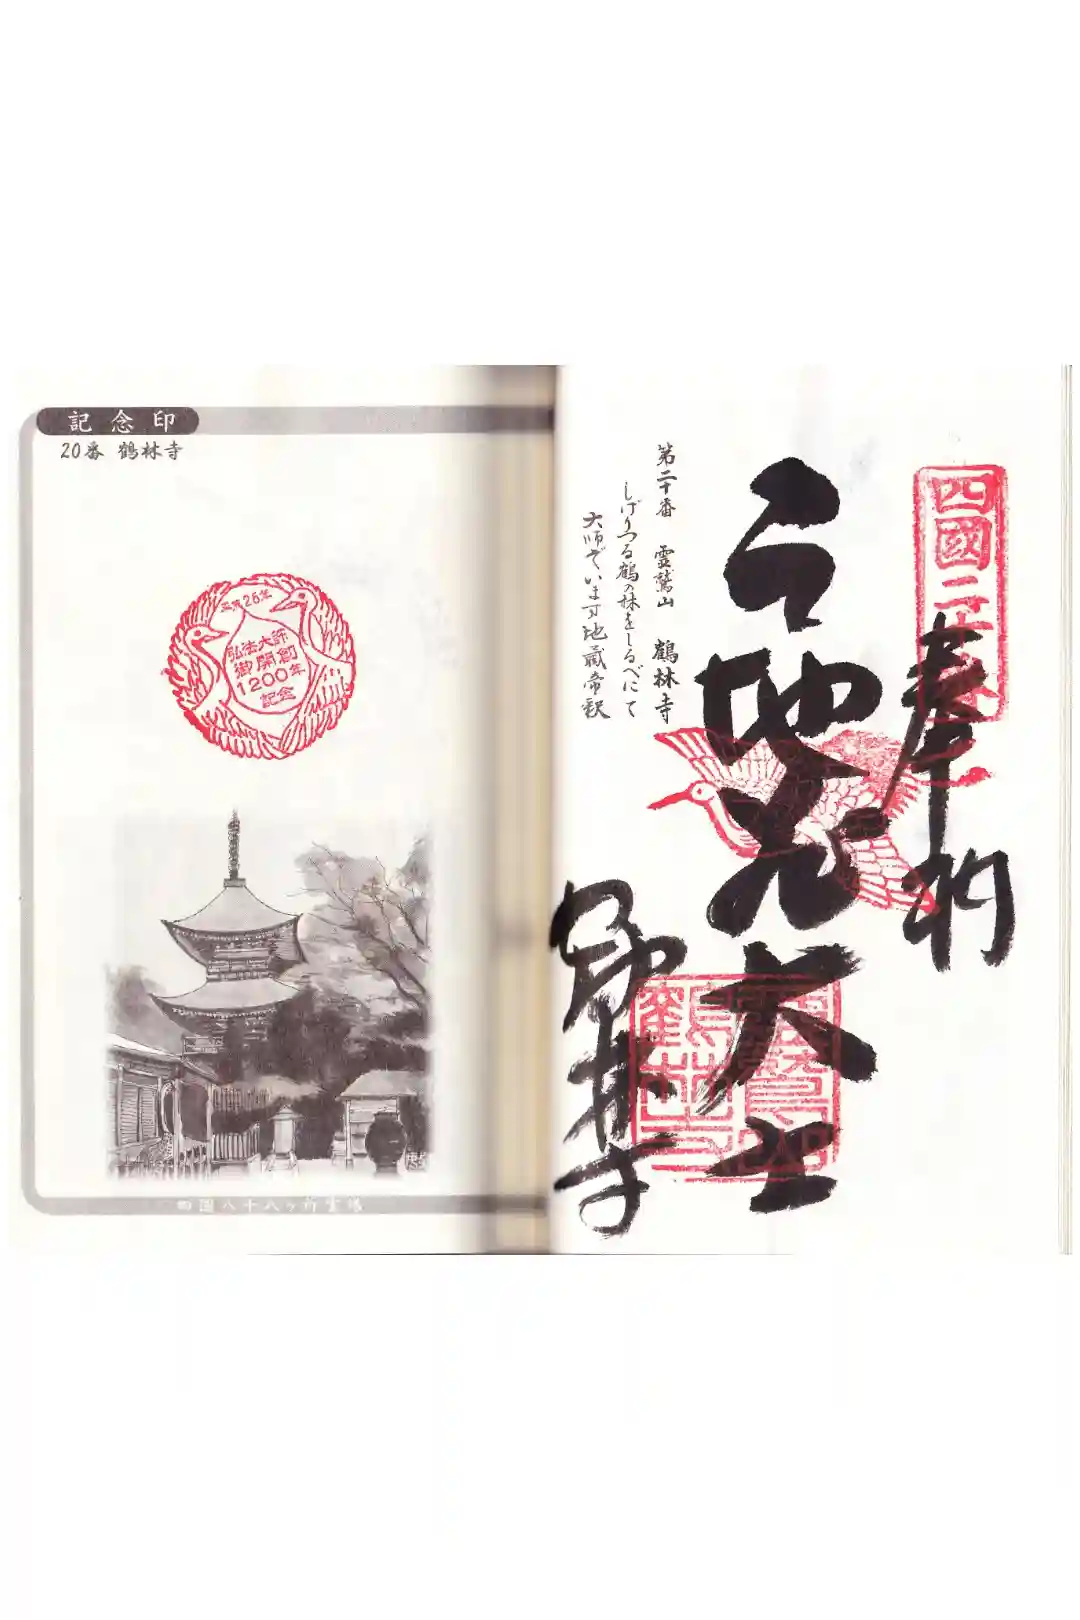 記念印
20番 鶴林寺
平成26年
弘法大師
御開創
1200年
記念
四国八十八ヶ所霊場
四國二十番
奉納
地蔵大士
鶴林寺
第二十番 霊鷲山 鶴林寺
しげりつる鶴の林をしるべにて
大師ぞいます地蔵帝釈